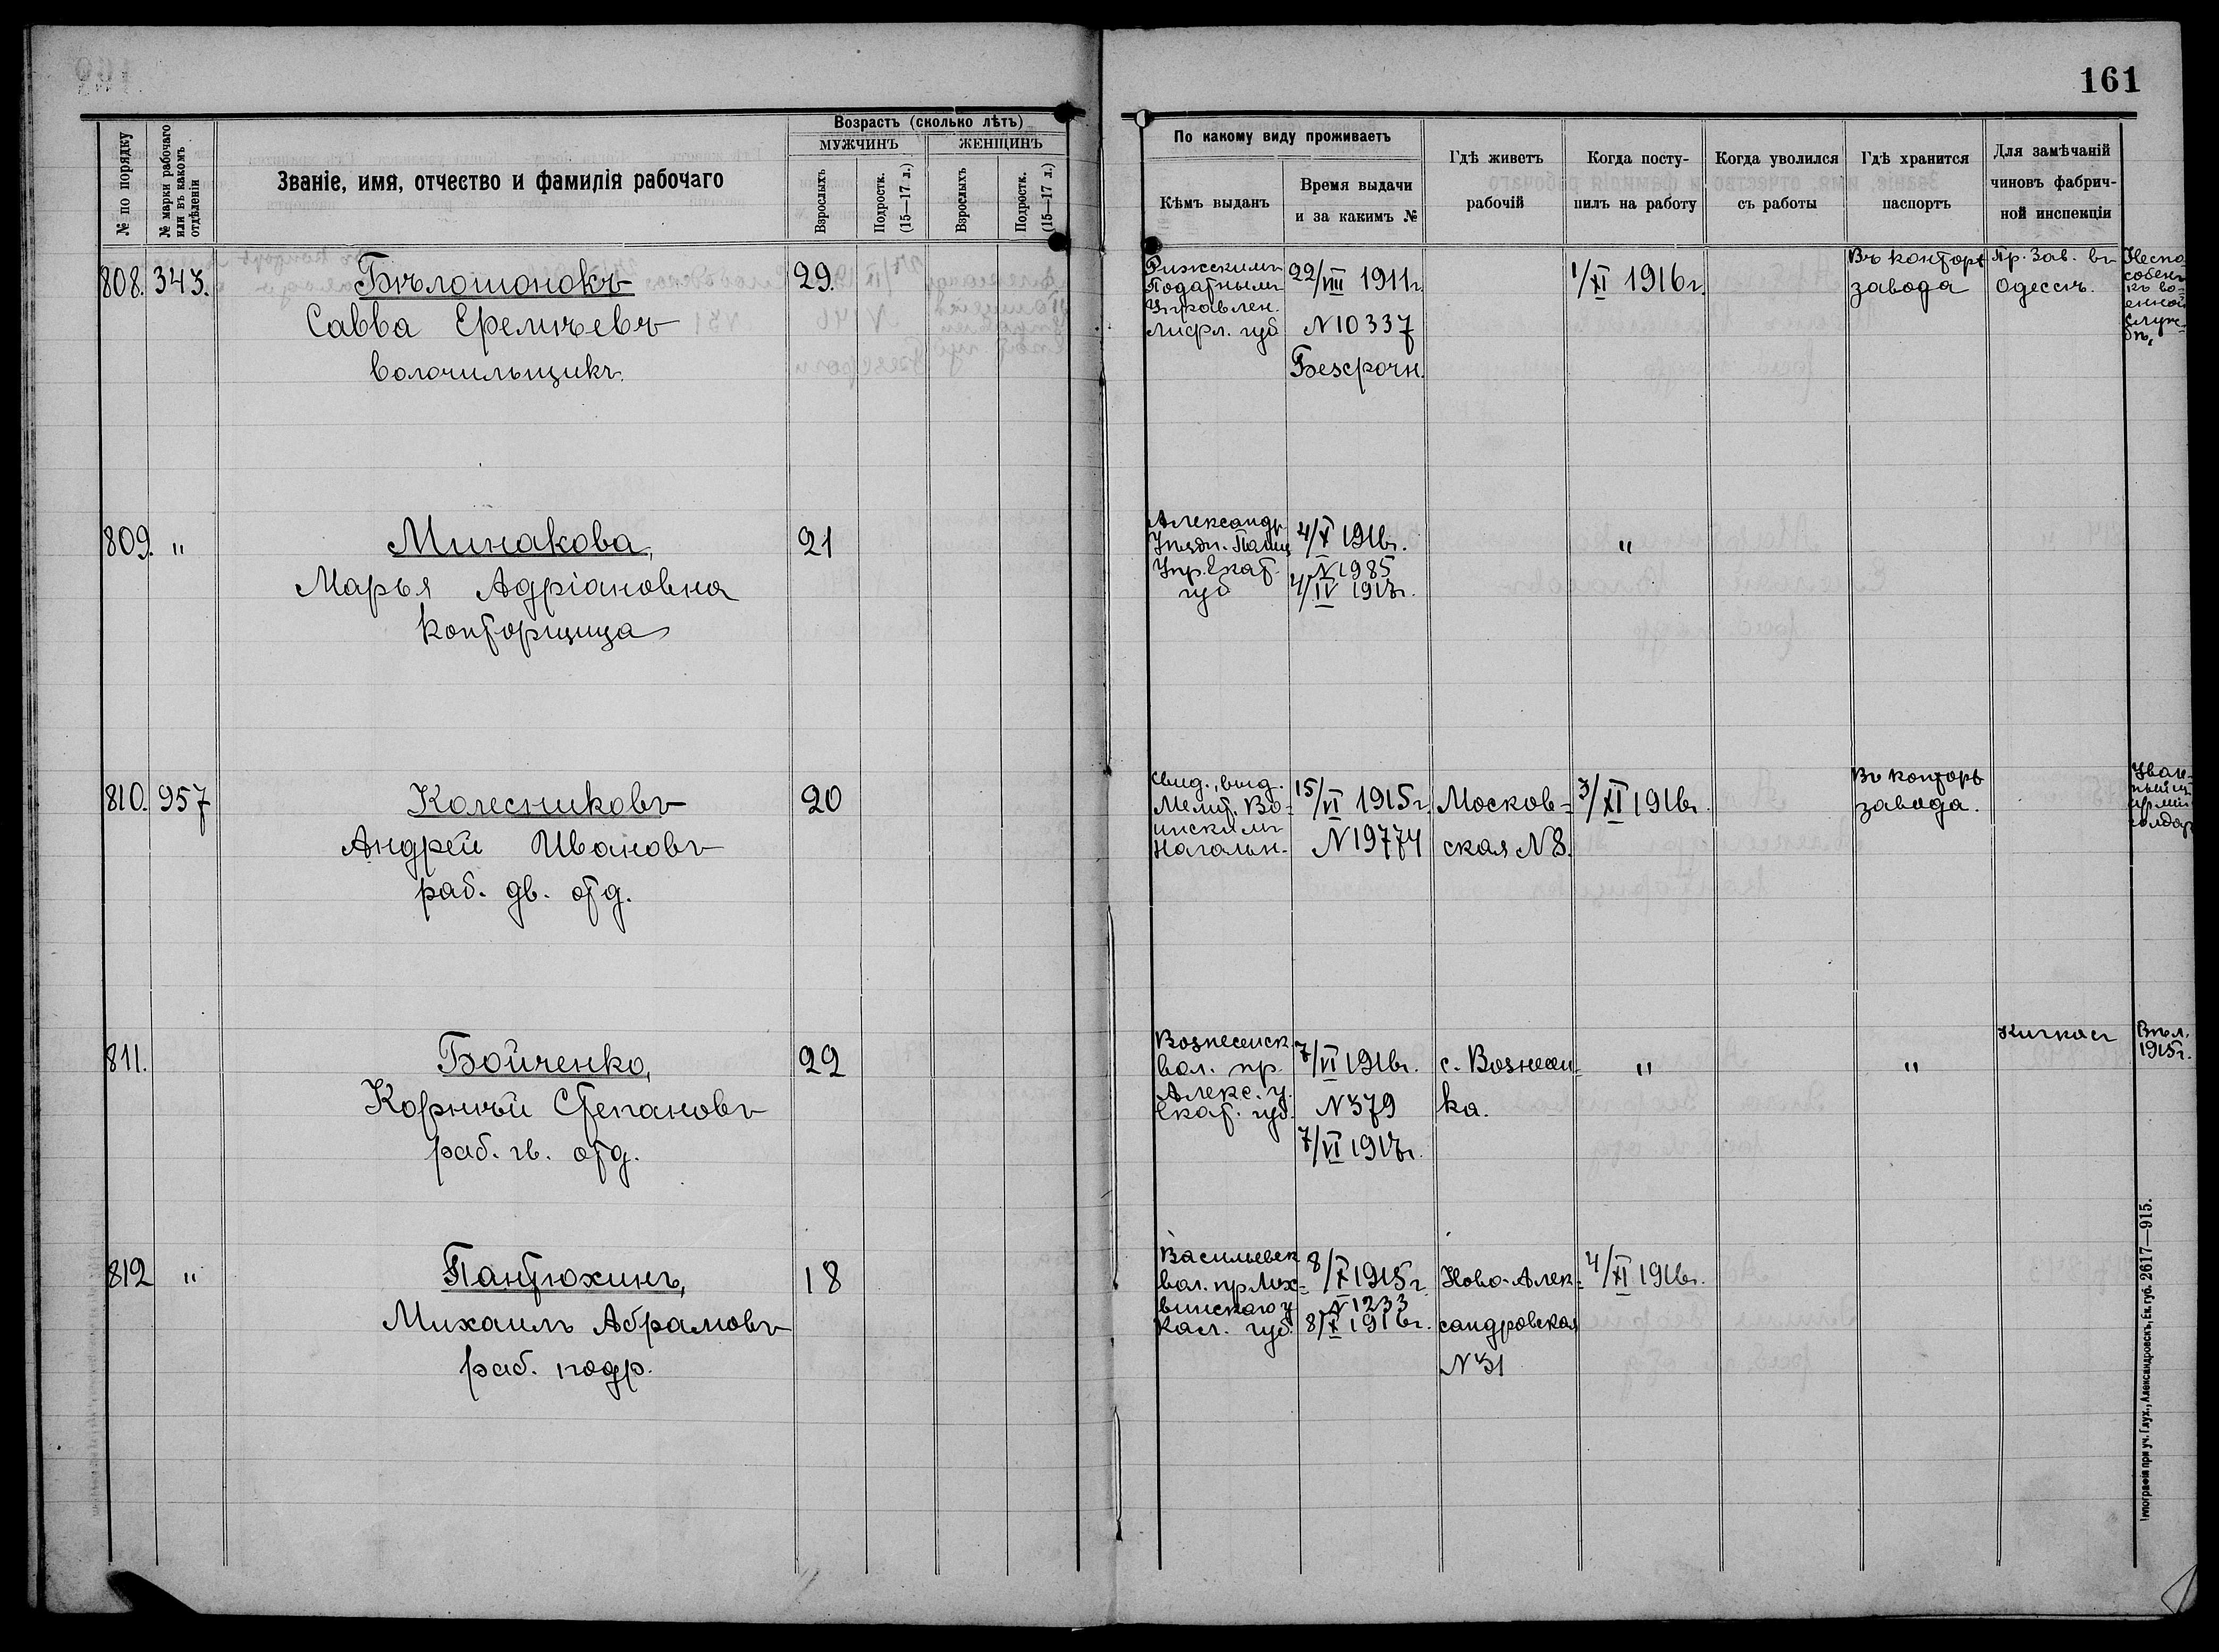 161
№ по порядку
№ марки рабочаго или въ какомъ отдѣленіи
Званіе, имя, отчество и фамилія рабочаго
Возрастъ (сколько лѣтъ)
МУЖЧИНЪ
ЖЕНЩИНЪ
Взрослыхъ
Подростк. (15—17 л.)
Взрослыхъ
Подростк. (15—17 л.)
По какому виду проживаетъ
Кѣмъ выданъ
Время выдачи
и за какимъ №
Гдѣ живетъ
рабочій
Когда посту-
пилъ на работу
Когда уволился
съ работы
Гдѣ хранится
паспортъ
Для замѣчаній
чиновъ фабрич-
ной инспекціи
808. 343.
Бѣлошонокъ
Савва Еремѣевъ
волочильщикъ.
29.
Рижскимъ
Податнымъ
Управлен.
Лифл. губ
22/VIII 1911г
N 10337
Безсрочн.
1/XI 1916г.
Въ конторѣ
завода
Пр. Зав. въ
Одессѣ.
Неспо
собенъ
къ во-
енной
служ-
бѣ,
809. "
Минакова,
Марья Адріановна
конторщица
21
Александр
Уѣздн. Полиц
Упр. Екат.
губ
4/X 1916г.
N 1985
4/IV 1917г.
"
810. 957
Колесниковъ
Андрей Ивановъ
раб. дв. отд.
20
Мелит. Во-
инскимъ
Начальн.
15/VI 1915г.
N 19774
Москов-
ская N 8.
3/XI 1916г.
Въ конторѣ
завода.
811.
Бойченко,
Корнѣй Степановъ
раб. гв. отд.
22
Вознесенск.
вол. пр.
Алекс. у.
Екат. губ.
7/VI 1916г.
N 379
7/VI 1917г.
с. Вознесен-
ка.
"
"
Кичкасъ
Бѣл.
1915г.
812 "
Пантюхинъ,
Михаилъ Абрамовъ
раб. подр.
18
Васильевск
вол. пр. Лих-
винскаго у
Кал. губ.
8/X 1915г
N 1233
8/X 1916г.
Ново-Алек-
сандровская
N 31
4/XI 1916г.
Типографія при уч. Глух., Александровскъ, Ек. губ. 2617—915.